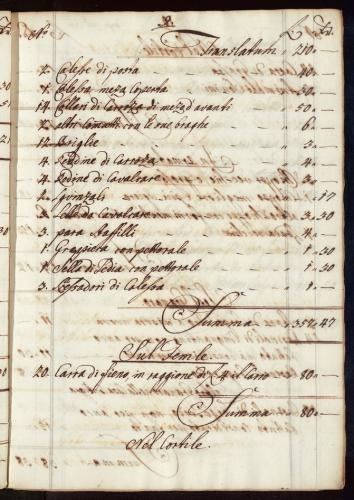 Nº
Translatum „ 210 „ —
1. Calesse di posta — „ 40 „ —
1. Calessa meza coperta — „ 30 „ —
14. Colari di Carozza di meza d'avanti „ 50 „ —
con le sue braghe — „ 6 „ —
12. Briglie — „ 3 „ —
4. Redine di Carozza — „ 4 „ —
4. Redine di Cavalcare — „ 3 „ —
2. — „ 1 „ 17
3. Selle da Cavalcare — „ 3 „ 30
3. para Staffili — „ 1 „ —
1. Gropiera con pettorale — „ 1 „ 30
1. Sella di Sedia con pettorale — „ 1 „ 30
3. di Calessa — „ 1 „ —
Summa — „ 357 „ 47
Sub Temle.
20. Carra di fieno, in raggione di 4 il Carro 80 „ —
Summa „ 80 „ —
Nel Cortile.